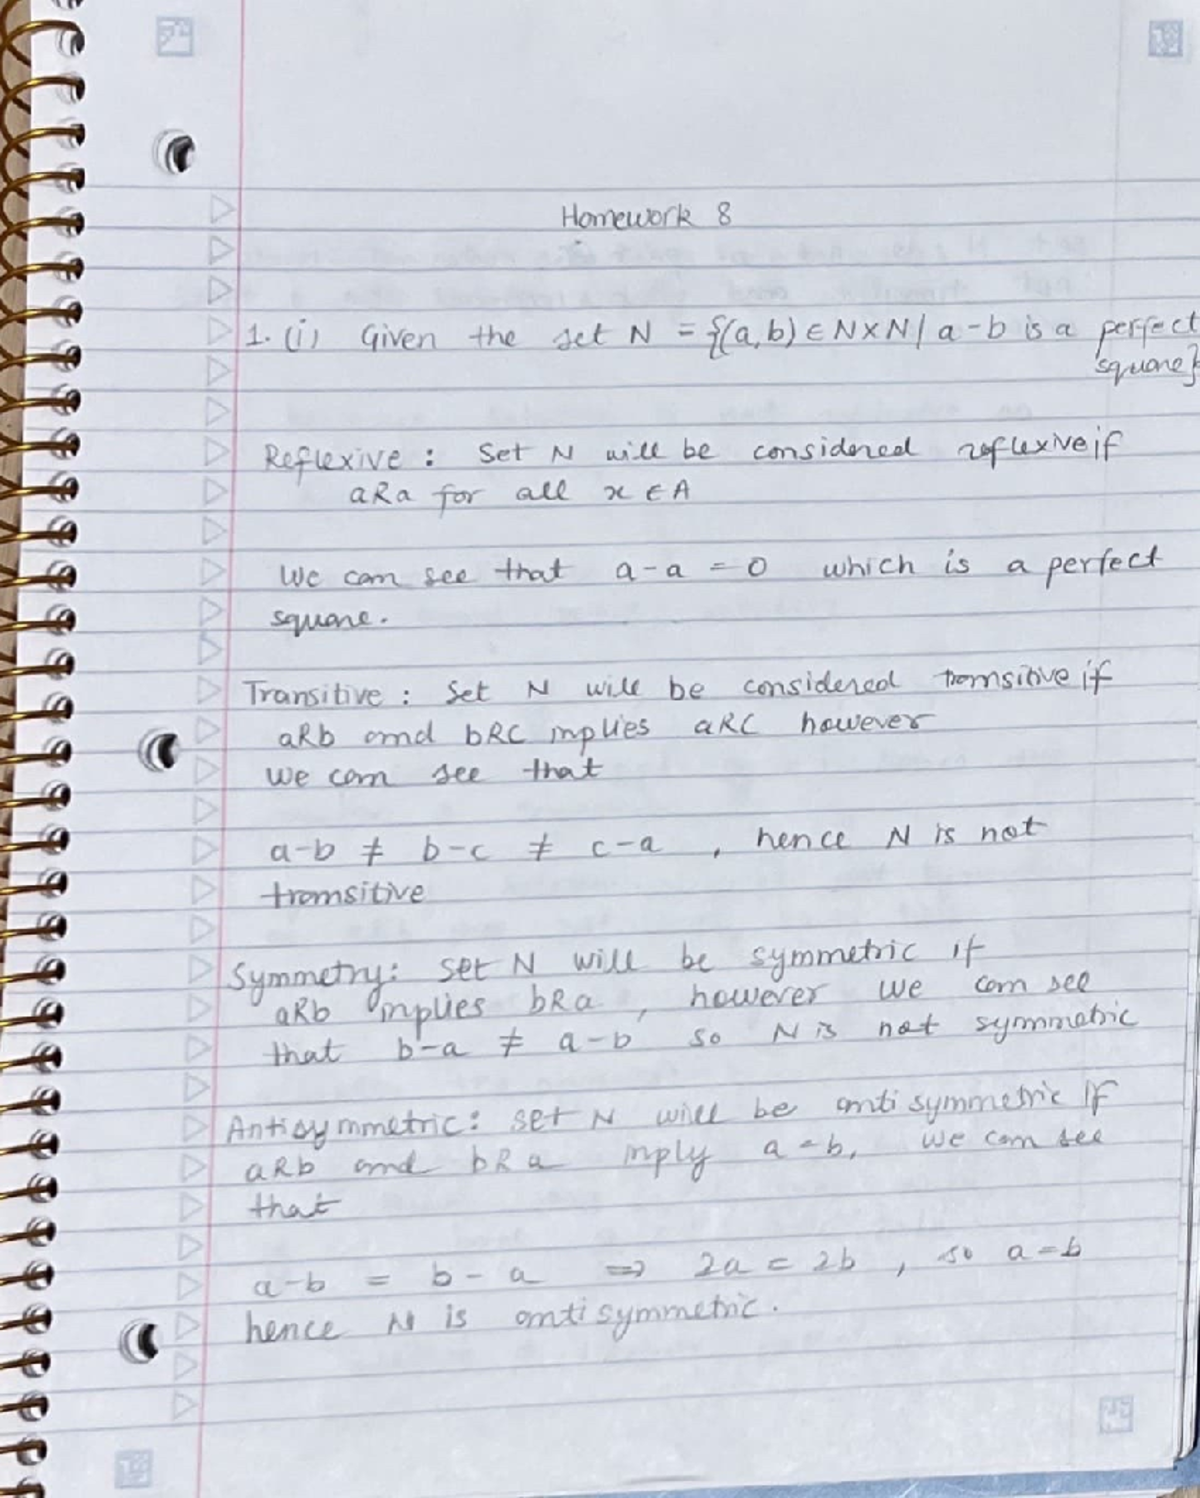 Homework 8
1. (i) Given the set N = {(a,b) ∈ N×N | a-b is a perfect
square}
Reflexive : Set N will be considered reflexive if
aRa for all x ∈ A
We can see that a-a = 0 which is a perfect
square.
Transitive : Set N will be considered transitive if
aRb and bRC implies aRC however
we can see that
a-b ≠ b-c ≠ c-a , hence N is not
transitive
Symmetry: Set N will be symmetric if
aRb implies bRa , however we can see
that b-a ≠ a-b so N is not symmetric
Antisymmetric: set N will be anti symmetric if
aRb and bRa imply a=b, we can see
that
a-b = b-a ⟹ 2a = 2b , so a=b
hence N is anti symmetric.